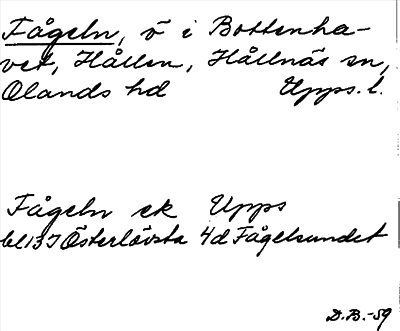 Fågeln, ö i Bottenha-
vet, Hållen, Hållnäs sn,
Olands hd Upps. l.
Fågeln ek Upps
bl 137 Österlövsta 4d Fågelsundet
D.B.-59